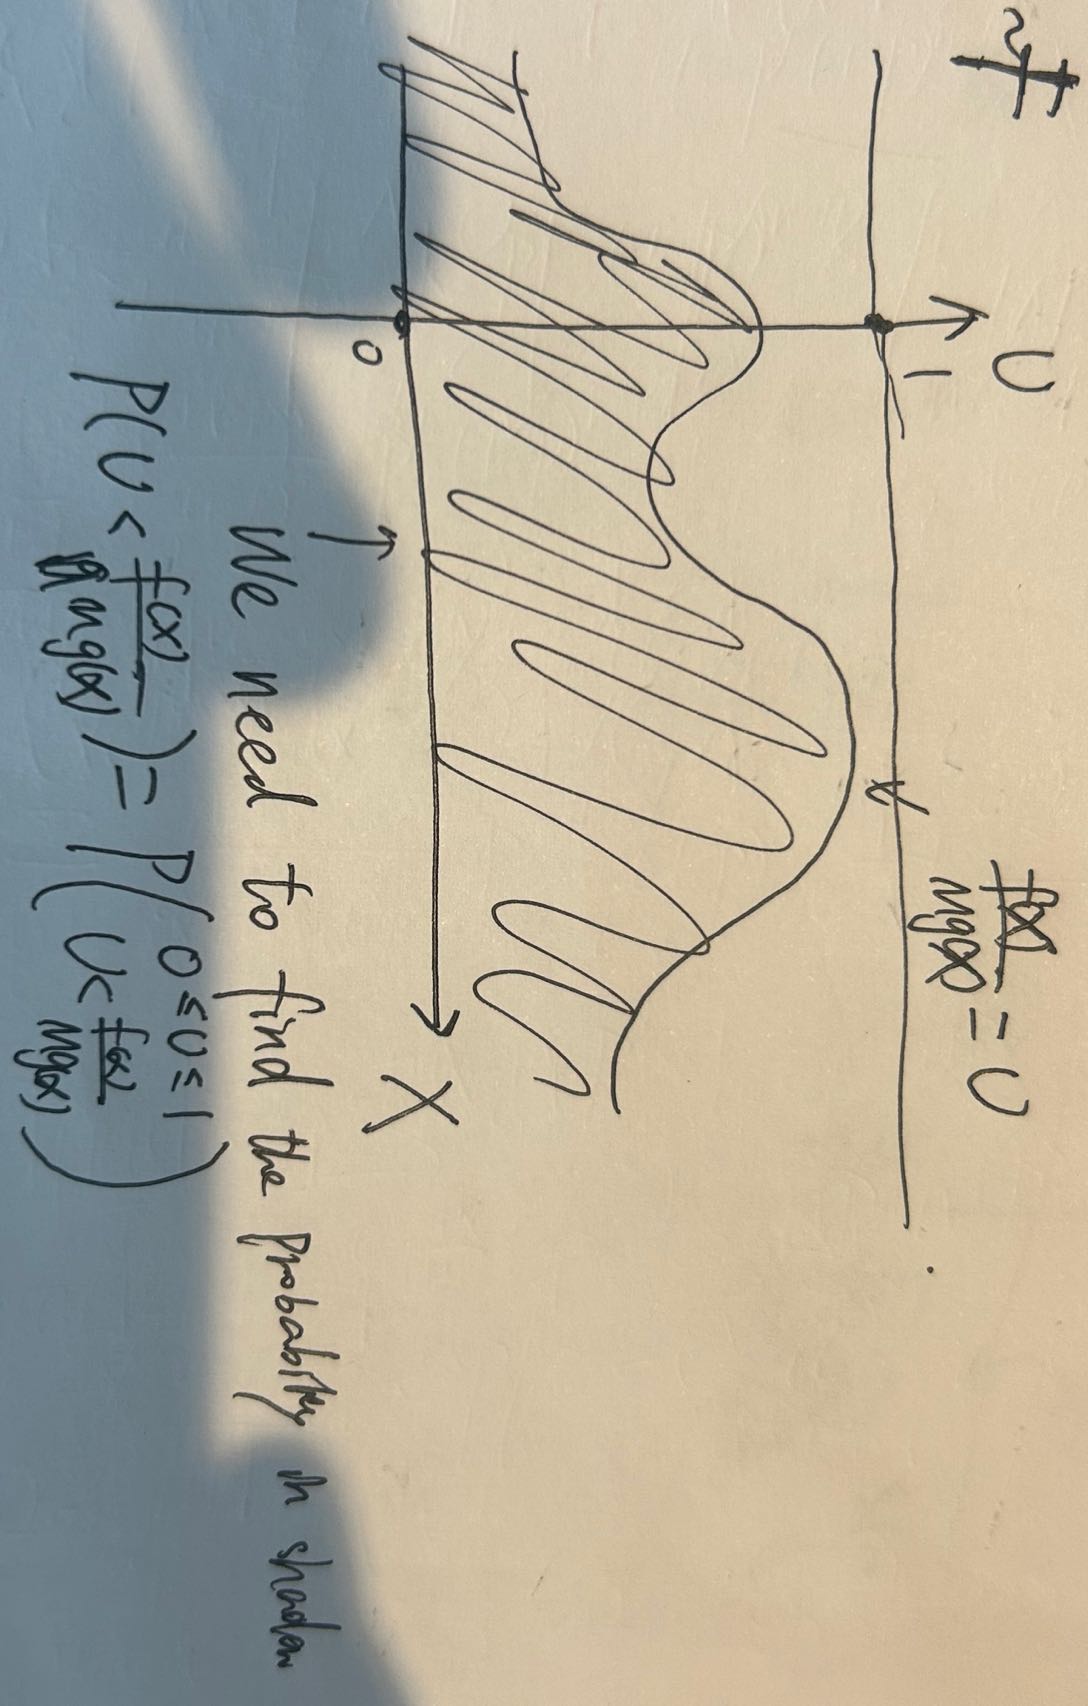 U
1
f(x)/Mg(x) = U
0
X
We need to find the probability in shadow
P(U < f(x)/Mg(x)) = P(0 ≤ U ≤ 1
U < f(x)/Mg(x))